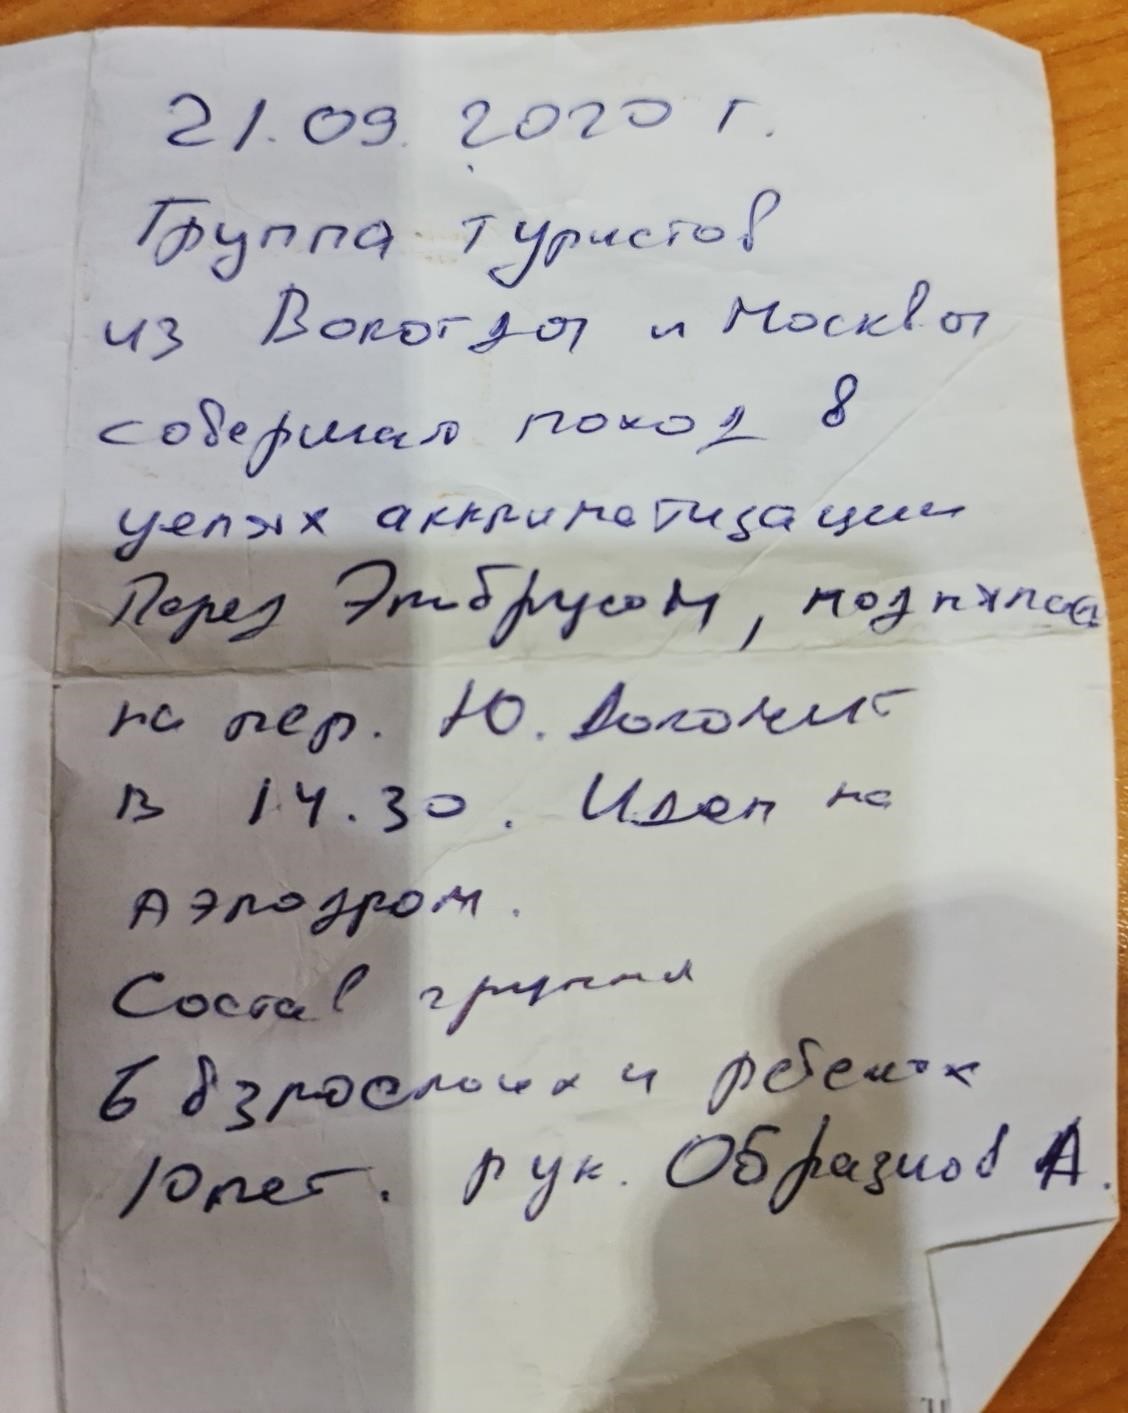 21.09.2020 г.
Группа туристов
из Вологды и Москвы
совершая поход в
целях акклиматизации
Перед Эльбрусом, поднялась
на пер. Ю. Доломит
в 14.30. Идем на
Аэродром.
Состав группы
6 взрослых и ребенок
10лет. рук. Образцов А.